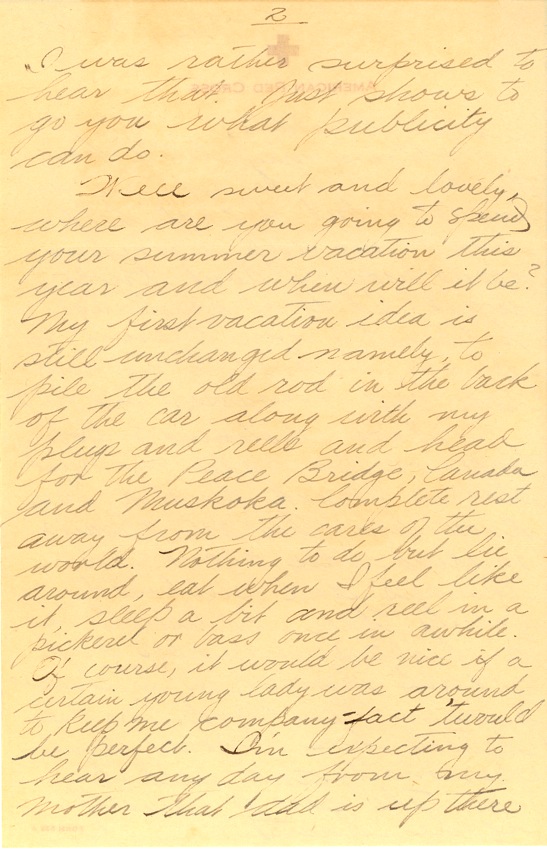 2
I was rather surprised to
hear that. Just shows to
go you what publicity
can do.
Well sweet and lovely,
where are you going to spend
your summer vacation this
year and when will it be?
My first vacation idea is
still unchanged namely, to
pile the old rod in the back
of the car along with my
plugs and reels and head
for the Peace Bridge, Canada
and Muskoka. Complete rest
away from the cares of the
world. Nothing to do but lie
around, eat when I feel like
it, sleep a bit and reel in a
pickerel or bass once in awhile.
Of course, it would be nice if a
certain young lady was around
to keep me company - fact 'twould
be perfect. I'm expecting to
hear any day from my
mother that dad is up there
AMERICAN RED CROSS